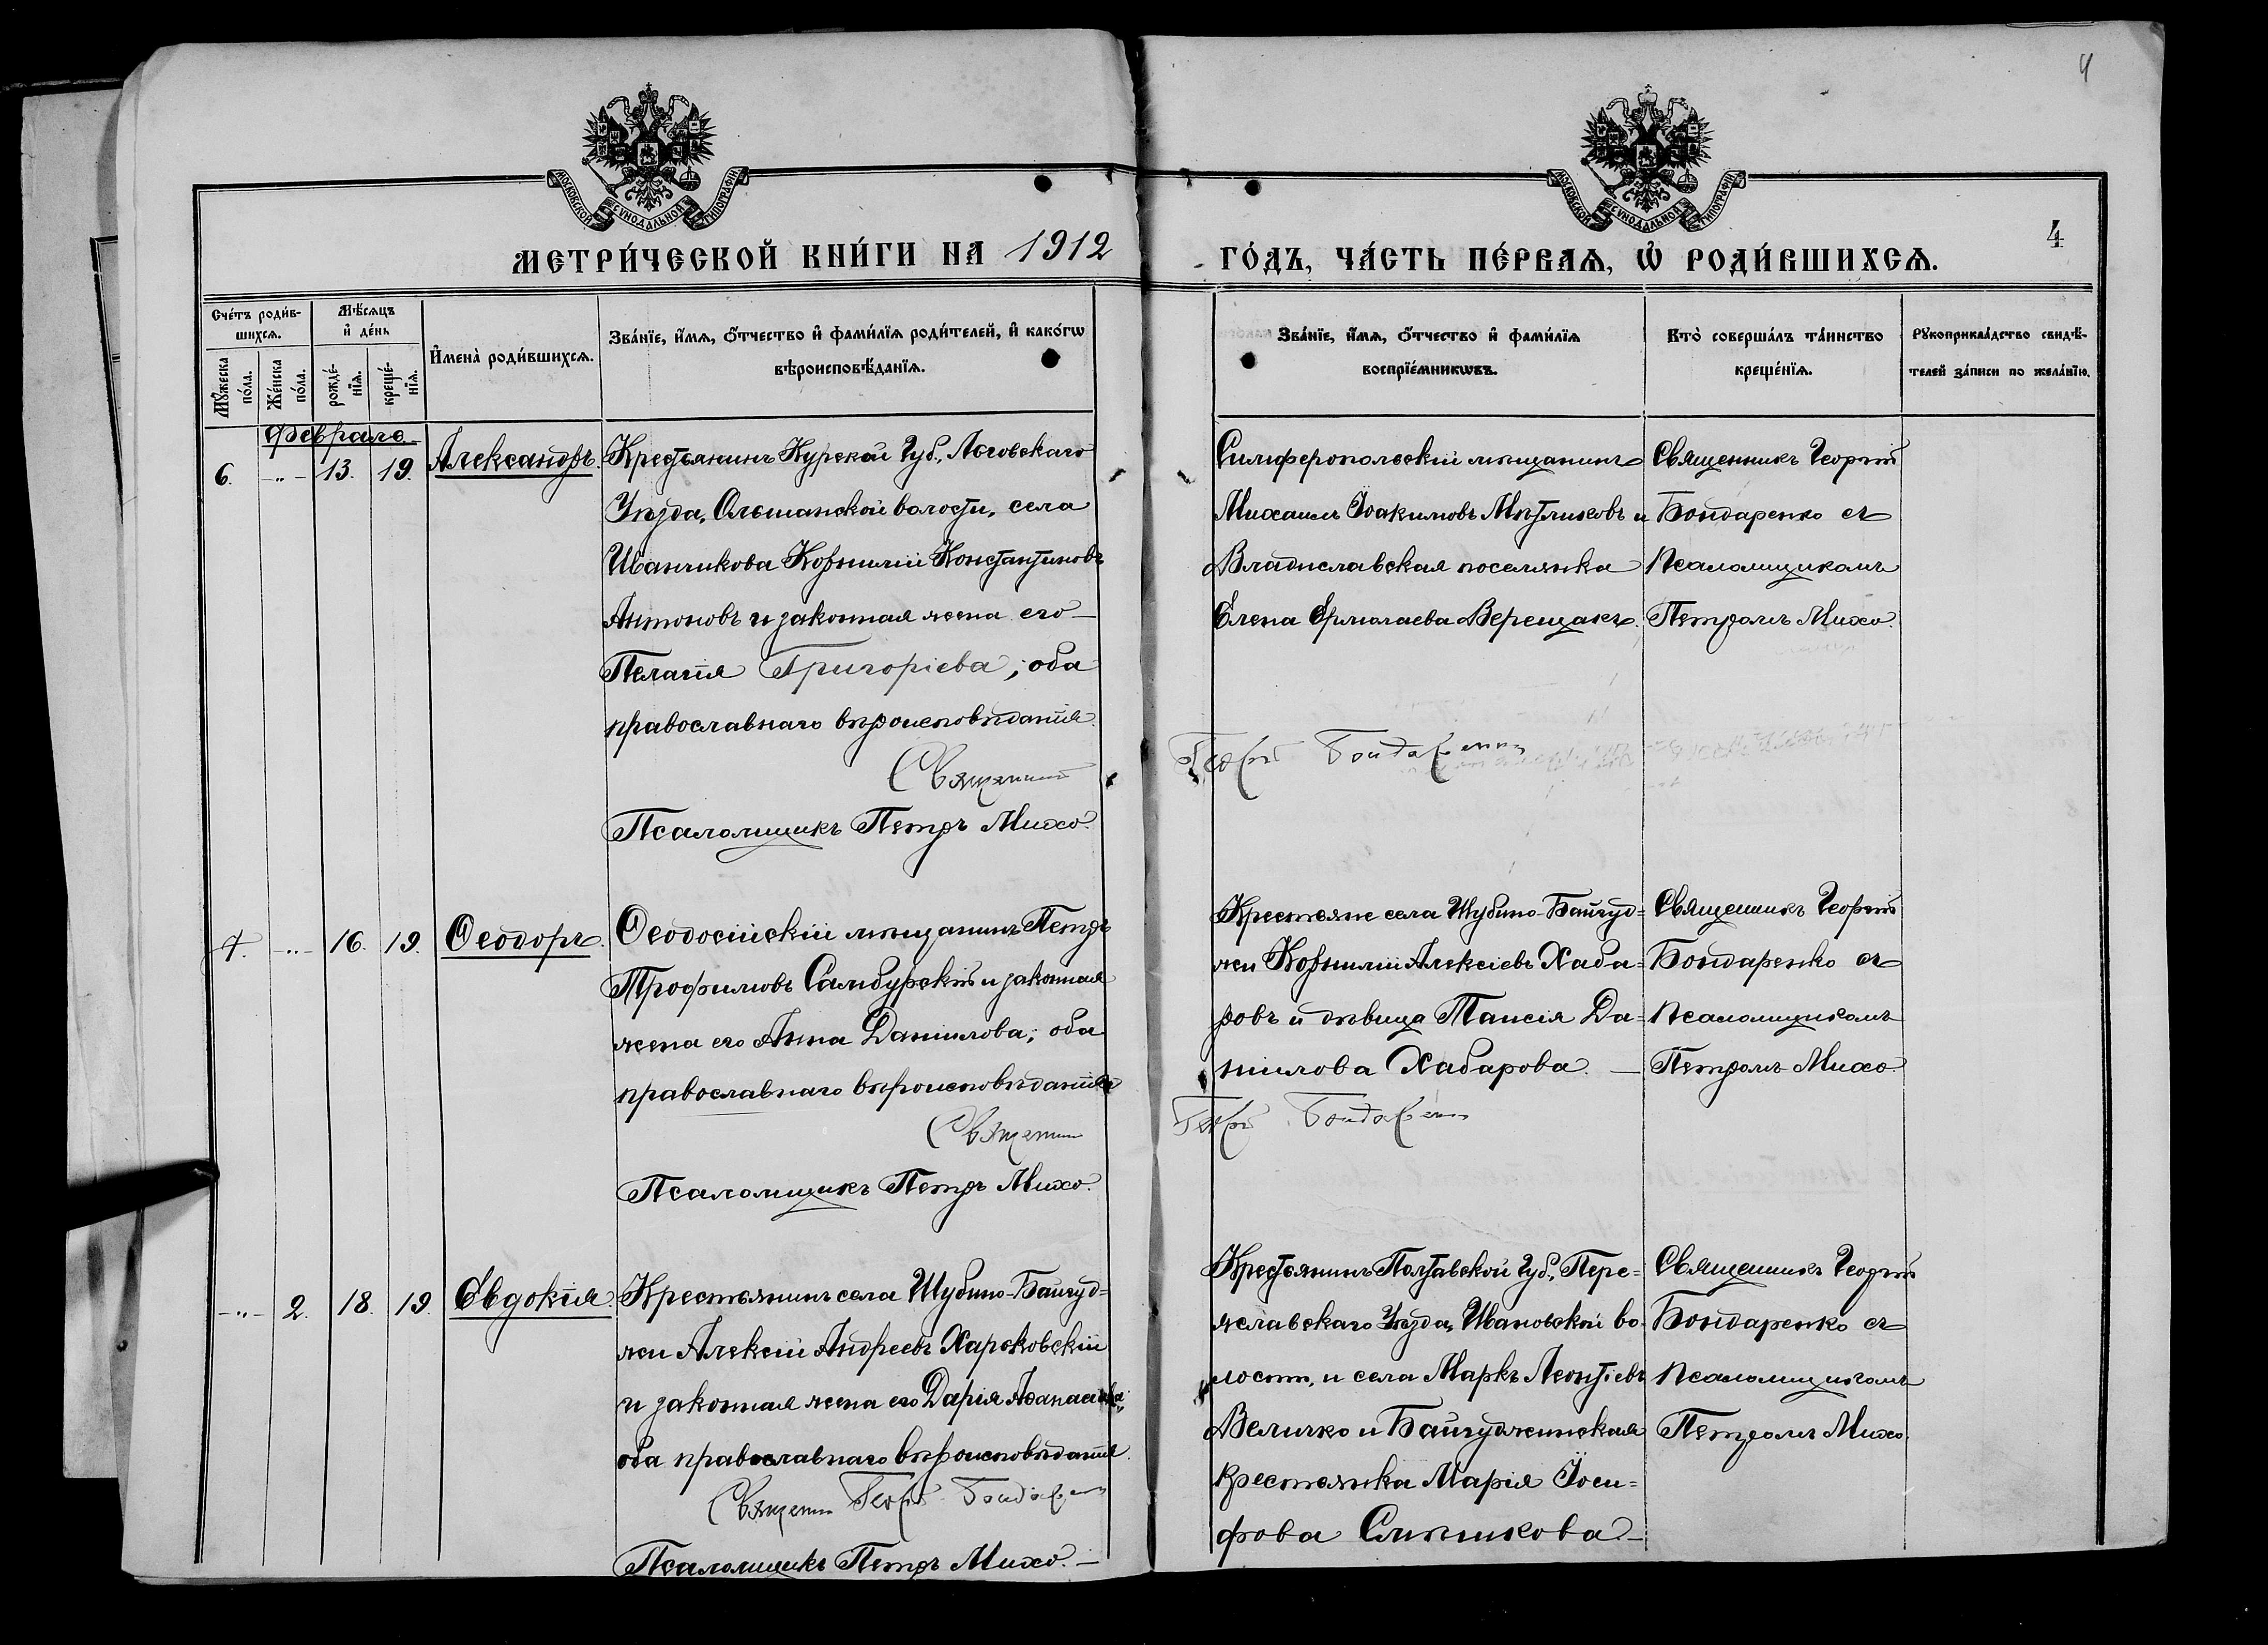 4
МОСКОВСКОЙ СѴНОДАЛЬНОЙ ТИПОГРАФІИ
МОСКОВСКОЙ СѴНОДАЛЬНОЙ ТИПОГРАФІИ
МЕТРИ́ЧЕСКОЙ КНИ́ГИ НА 1912
ГО́ДЪ, ЧА́СТЬ ПЕ́РВАѦ, Ѡ҆ РОДИ́ВШИХСѦ.
4
Сче́тъ роди́в-
шихсѧ.
Мꙋ́жеска
по́ла.
Же́нска
по́ла.
Мѣ́сѧцъ
и҆ де́нь
рожде́-
нїѧ.
креще́-
нїѧ.
И҆мена̀ роди́вшихсѧ.
Зва́нїе, и҆́мѧ, ѻ҆́тчество и҆ фами́лїѧ роди́телей, и҆ како́гѡ
вѣроисповѣ́данїѧ.
Зва́нїе, и҆́мѧ, ѻ҆́тчество и҆ фами́лїѧ
воспрїе́мникѡвъ.
Кто̀ соверша́лъ та́инство
креще́нїѧ.
Рꙋкоприкла́дство свидѣ́-
телей за́писи по жела́нїю.
Февраль
6. -„- 13. 19. Александръ.
Крестьянинъ Курской Губ., Льговскаго
Уѣзда, Ольшанской волости, села
Иванчикова Корнилій Константиновъ
Антоновъ и законная жена его –
Пелагія Григоріева, оба
православнаго вѣроисповѣданія.
Священникъ
Псаломщикъ Петръ Михо.
Симферопольскій мѣщанинъ
Михаилъ Іоакимовъ Мѣтликовъ и
Владиславская поселянка
Елена Ермолаева Верещакъ.
Георгій Бондаренко
Священникъ Георгій
Бондаренко съ
псаломщикомъ
Петромъ Михо.
7. -„- 16. 19. Ѳеодоръ.
Ѳеодосійскій мѣщанинъ Петръ
Трофимовъ Самбурскій и законная
жена его Анна Даніилова; оба
православнаго вѣроисповѣданія
Священникъ
Псаломщикъ Петръ Михо.
Крестьяне села Шубино-Байгуд=
жи Корнилій Алексіевъ Хаба=
ровъ и дѣвица Таисія Да=
ніилова Хабарова. –
Георгій Бондаренко
Священникъ Георгій
Бондаренко съ
псаломщикомъ
Петромъ Михо.
-„- 2. 18. 19. Евдокія.
Крестьянинъ села Шубино-Байгуд=
жи Алексій Андреевъ Харьковскій
и законная жена его Дарія Аѳанасіева,
оба православнаго вѣроисповѣданія.
Священникъ Георгій Бондаренко
Псаломщикъ Петръ Михо. –
Крестьянинъ Полтавской Губ., Пере=
яславскаго Уѣзда, Ивановской во=
лости, и села Маркъ Леонтіевъ
Величко и Байгуджинская
крестьянка Марія Іоси=
фова Слѣпикова –
Священникъ Георгій
Бондаренко съ
псаломщикомъ
Петромъ Михо.